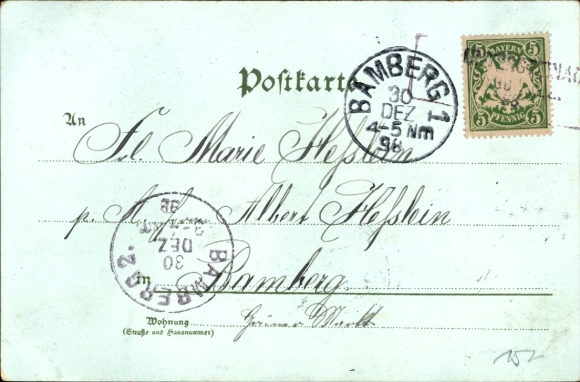 BAYERN
5 5
PFENNIG
Postkarte
BAMBERG 1
30
DEZ
4-5 NM
98
An
Frl. Marie Heßlein
p. Albert Heßlein
BAMBERG 2.
30
DEZ
98
in Bamberg
Wohnung
(Straße und Hausnummer)
Grüner Markt
152